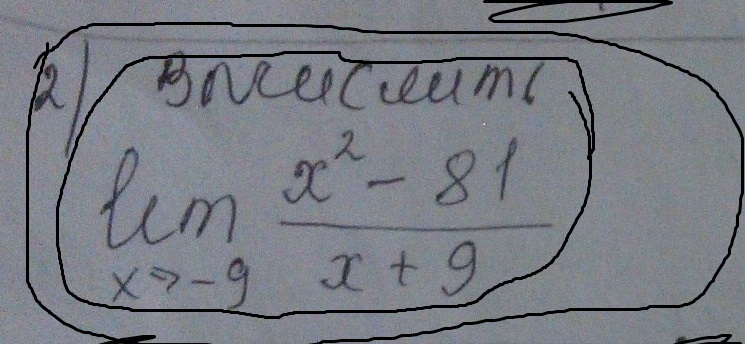 2) Вычислить
lim x² - 81
x→-9 x + 9